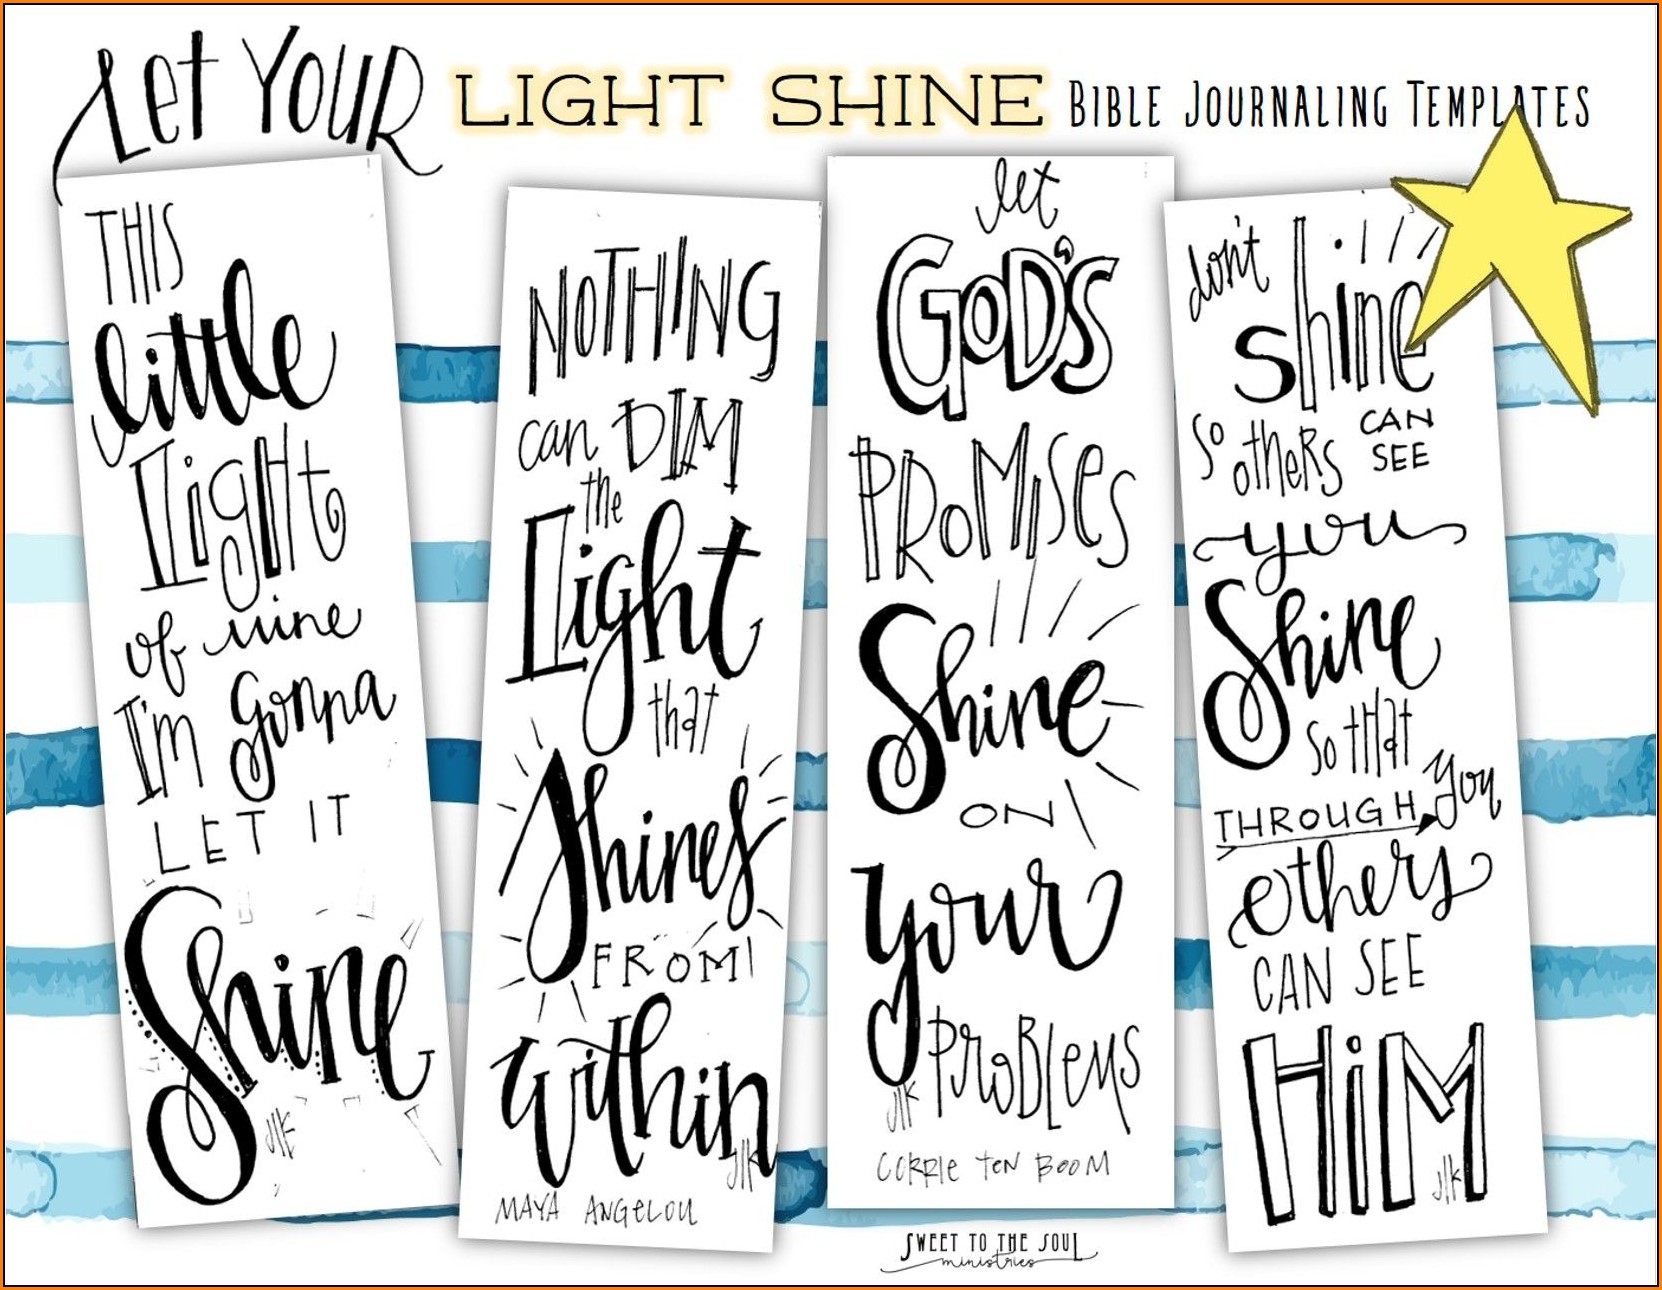 Let YOUR LIGHT SHINE BIBLE JOURNALING TEMPLATES
THIS
little
LigHt
of mine
I'm gonna
LET IT
Shine
JLK
NOTHING
can DIM
the
Light
that
Shines
FROM
within
JLK
MAYA ANGELOU
let
GoD's
PRoMises
Shine
ON
your
PRoBLeMS
JLK
CORRIE TEN BOOM
don't
shine
so otheRs CAN
SEE
you
Shine
so tHat
THROUGH you
others
CAN SEE
HiM
JLK
SWEET TO THE SOUL
ministries